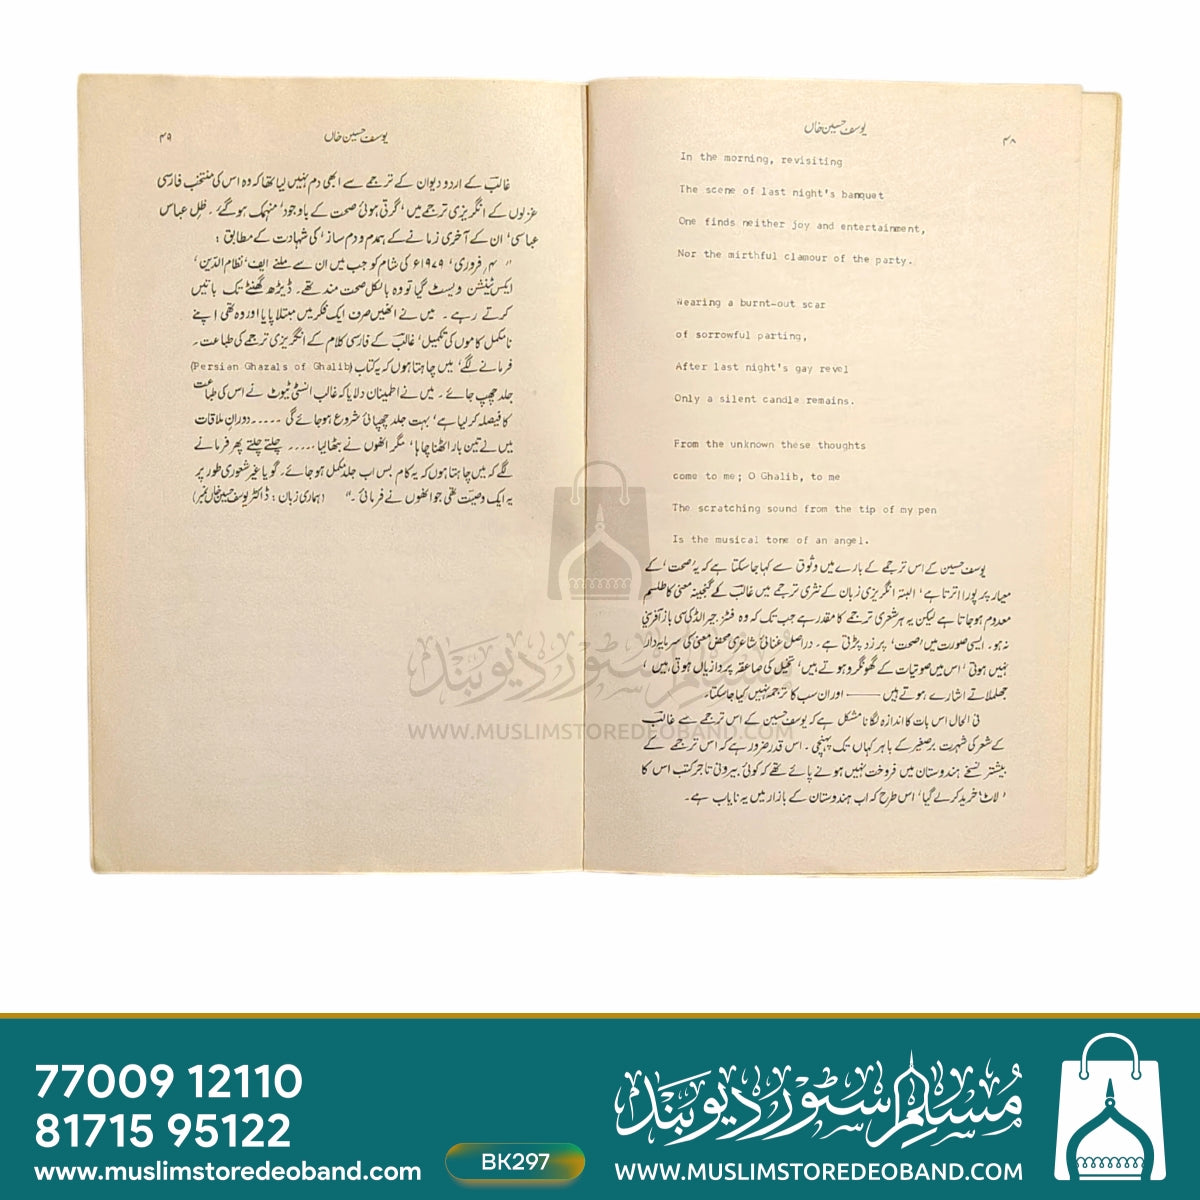 ۴۸
یوسف حسین خاں
In the morning, revisiting
The scene of last night's banquet
One finds neither joy and entertainment,
Nor the mirthful clamour of the party.
Wearing a burnt-out scar
of sorrowful parting,
After last night's gay revel
Only a silent candle remains.
From the unknown these thoughts
come to me; O Ghalib, to me
The scratching sound from the tip of my pen
Is the musical tone of an angel.
یوسف حسین کے اس ترجمے کے بارے میں وثوق سے کہا جا سکتا ہے کہ یہ 'صحت' کے
معیار پر پورا اترتا ہے، البتہ انگریزی زبان کے نثری ترجمے میں غالبؔ کے گنجینہ معنی کا طلسم
معدوم ہو جاتا ہے لیکن یہ ہر شعری ترجمے کا مقدر ہے جب تک کہ وہ فٹز جیرالڈ کی سی باز آفرینی
نہ ہو۔ ایسی صورت میں 'صحت' پر زد پڑتی ہے۔ دراصل غنائی شاعری محض معنی کی سرمایہ دار
نہیں ہوتی، اس میں صوتیات کے گھونگرو ہوتے ہیں، تخیل کی صاعقہ پردازیاں ہوتی ہیں،
جھلملاتے اشارے ہوتے ہیں —— اور ان سب کا ترجمہ نہیں کیا جا سکتا۔
فی الحال اس بات کا اندازہ لگانا مشکل ہے کہ یوسف حسین کے اس ترجمے سے غالبؔ
کے شعر کی شہرت برِصغیر کے باہر کہاں تک پہنچی۔ اس قدر ضرور ہے کہ اس ترجمے کے
بیشتر نسخے ہندوستان میں فروخت نہیں ہونے پائے تھے کہ کوئی بیرونی تاجر کتب اس کا
'لاٹ' خرید کر لے گیا، اس طرح کہ اب ہندوستان کے بازار میں یہ نایاب ہے۔
۴۹
یوسف حسین خاں
غالبؔ کے اردو دیوان کے ترجمے سے ابھی دم نہیں لیا تھا کہ وہ اس کی منتخب فارسی
غزلوں کے انگریزی ترجمے میں، گرتی ہوئی صحت کے باوجود، منہمک ہو گئے۔ ظل عباس
عباسی، ان کے آخری زمانے کے ہمدم و دم ساز، کی شہادت کے مطابق:
"۴؍ فروری، ۱۹۷۹ء کی شام کو جب میں ان سے ملنے ایف، نظام الدین،
ایکس ٹینشن ویسٹ گیا تو وہ بالکل صحت مند تھے۔ ڈیڑھ گھنٹے تک باتیں
کرتے رہے۔ میں نے انھیں صرف ایک فکر میں مبتلا پایا اور وہ تھی اپنے
نامکمل کاموں کی تکمیل، غالبؔ کے فارسی کلام کے انگریزی ترجمے کی طباعت۔
فرمانے لگے، میں چاہتا ہوں کہ یہ کتاب (Persian Ghazals of Ghalib)
جلد چھپ جائے۔ میں نے اطمینان دلایا کہ غالب انسٹی ٹیوٹ نے اس کی طباعت
کا فیصلہ کر لیا ہے، بہت جلد چھپائی شروع ہو جائے گی ..... دوران ملاقات
میں نے تین بار اٹھنا چاہا، مگر انھوں نے بٹھا لیا ..... چلتے چلتے پھر فرمانے
لگے کہ میں چاہتا ہوں کہ یہ کام بس اب جلد مکمل ہو جائے۔ گویا غیر شعوری طور پر
یہ ایک وصیت تھی جو انھوں نے فرمائی۔" (ہماری زبان: ڈاکٹر یوسف حسین خاں نمبر)
مسلم سٹور دیوبند
WWW.MUSLIMSTOREDEOBAND.COM
77009 12110
81715 95122
www.muslimstoredeoband.com
BK297
مسلم سٹور دیوبند
WWW.MUSLIMSTOREDEOBAND.COM